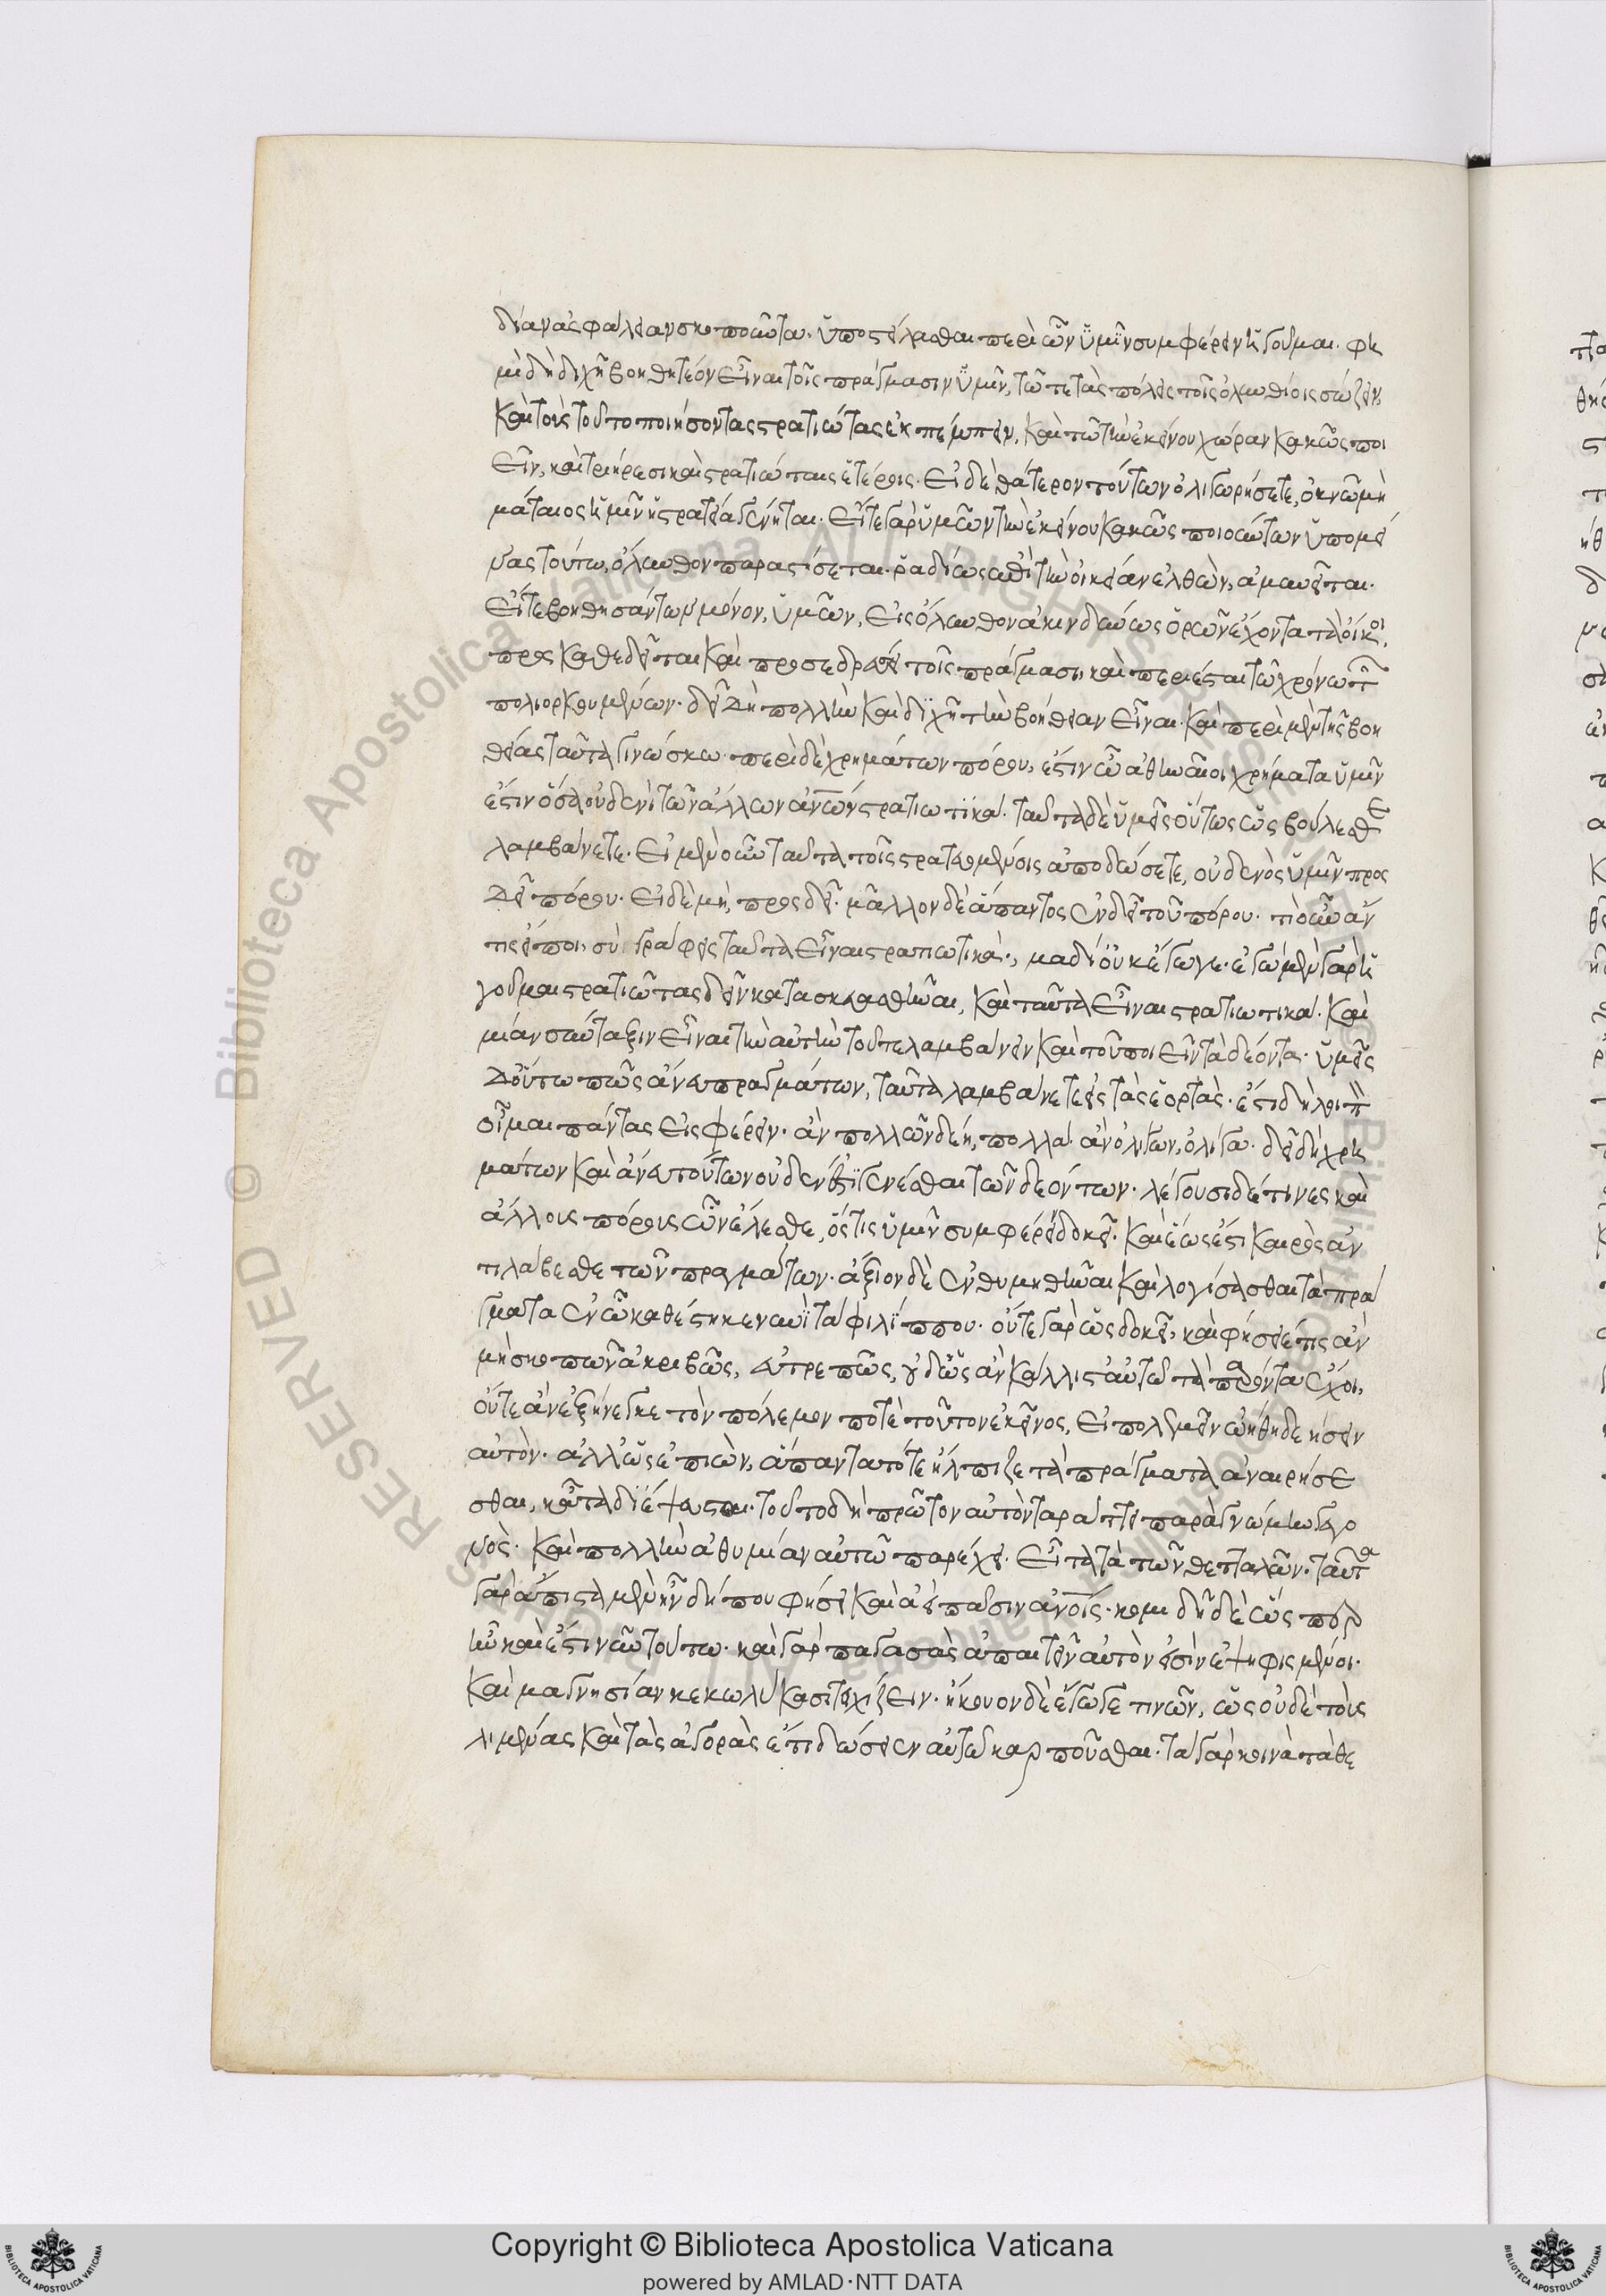 δίαν ἀσφάλειαν σκοποῦντα. ὑποστείλασθαι περὶ ὧν ὑμῖν συμφέρειν ἡγοῦμαι. φη
μὶ δὴ διχῆ βοηθητέον εἶναι τοῖς πράγμασιν ὑμῖν, τῶ τε τὰς πόλεις τοῖς ὀλυνθίοις σώζειν,
καὶ τοὺς τοῦτο ποιήσοντας στρατιώτας ἐκπέμπειν, καὶ τῶ τὴν ἐκείνου χώραν κακῶς ποι
εῖν, καὶ τριήρεσι καὶ στρατιώταις ἑτέροις. εἰ δὲ θατέρου τούτων ὀλιγωρήσετε, ὀκνῶ μὴ
μάταιος ἡμῖν ἡ στρατεία γένηται. εἴτε γὰρ ὑμῶν τὴν ἐκείνου κακῶς ποιούντων ὑπομεί
νας τοῦτο, ὄλυνθον παραστήσεται. ῥαδίως ἐπὶ τὴν οἰκείαν ἐλθὼν, ἀμυνεῖται.
εἴτε βοηθησάντων μόνον, ὑμῶν, εἰς ὄλυνθον ἀκινδύνως ὁρῶν ἔχοντα τὰ οἴκοι,
προσκαθεδεῖται καὶ προσεδρεύσει τοῖς πράγμασι, καὶ περιέσται τῶ χρόνω τῶν
πολιορκουμένων. δεῖ δὴ πολλὴν καὶ διχῆ τὴν βοήθειαν εἶναι. καὶ περὶ μὲν τῆς βοη
θείας ταῦτα γινώσκω. περὶ δὲ χρημάτων πόρου, ἔστιν ὦ ἄνδρες ἀθηναῖοι χρήματα ὑμῖν
ἔστιν ὅσα οὐδενὶ τῶν ἄλλων ἀνων στρατιωτικά. ταῦτα δὲ ὑμεῖς οὕτως ὡς βούλεσθε
λαμβάνετε. εἰ μὲν οὖν ταῦτα τοῖς στρατευομένοις ἀποδώσετε, οὐδενὸς ὑμῖν προς
δεῖ πόρου. εἰ δὲ μὴ, προσδεῖ. μᾶλλον δὲ ἅπαντος ἐνδεῖ τοῦ πόρου. τί οὖν ἄν
τις εἴποι, σὺ γράφεις ταῦτα εἶναι στρατιωτικά., μὰ δί' οὐκ ἔγωγε. ἐγὼ μὲν γὰρ ἡ
γοῦμαι στρατιώτας δεῖν κατασκευασθῆναι, καὶ ταῦτα εἶναι στρατιωτικά. καὶ
μίαν σύνταξιν εἶναι τὴν αὐτὴν τοῦ τε λαμβάνειν καὶ τοῦ ποιεῖν τὰ δέοντα. ὑμεῖς
δ' οὕτω πως ἄνευ πραγμάτων, ταῦτα λαμβάνετε εἰς τὰς ἑορτάς. ἔστι δὴ λοιπὸν
οἶμαι πάντας εἰσφέρειν. ἂν πολλῶν δέῃ, πολλά. ἂν ὀλίγων, ὀλίγα. δεῖ δὴ χρη
μάτων καὶ ἄνευ τούτων οὐδὲν ἔστι γενέσθαι τῶν δεόντων. λέγουσι δέ τινες καὶ
ἄλλους πόρους ὧν ἕλεσθε, ὅστις ὑμῖν συμφέρειν δοκεῖ. καὶ ἕως ἐστὶ καιρὸς ἀν
τιλάβεσθε τῶν πραγμάτων. ἄξιον δὲ ἐνθυμηθῆναι καὶ λογίσασθαι τὰ πρά
γματα ἐν ὧ καθέστηκεν νυνὶ τὰ φιλίππου. οὔτε γὰρ ὡς δοκεῖ, καὶ φήσειέ τις ἂν
μὴ σκοπῶν ἀκριβῶς, εὐτρεπῶς, οὐδ' ὡς ἂν κάλλιστ' αὐτῶ τὰ παρόντα ἔχοι,
οὔτε ἂν ἐξήνεγκε τὸν πόλεμον ποτὲ τοῦτον ἐκεῖνος, εἰ πολεμεῖν ὠήθη δεήσειν
αὐτόν. ἀλλ' ὡς ἐπιὼν, ἅπαντα τότε ἤλπιζε τὰ πράγματα ἀναιρήσε
σθαι, κᾆτα διέψευσται. τοῦτο δὴ πρῶτον αὐτὸν ταράττει παρὰ γνώμην γεγο
νὸς. καὶ πολλὴν ἀθυμίαν αὐτῶ παρέχει. εἶτα τὰ τῶν θετταλῶν. ταῦτα
γὰρ ἄπιστα μὲν ἦν δήπου φύσει καὶ ἀεὶ πᾶσιν ἀνοις. κομιδῇ δὲ ὡς περ
ἦν καὶ ἔστι νῦν τούτω. καὶ γὰρ παγασὰς ἀπαιτεῖν αὐτὸν εἰσὶν ἐψηφισμένοι.
καὶ μαγνησίαν κεκωλύκασι τειχίζειν. ἤκουον δὲ ἔγωγε τινῶν, ὡς οὐδὲ τοὺς
λιμένας καὶ τὰς ἀγορὰς ἔτι δώσειεν αὐτῶ καρποῦσθαι. τὰ γὰρ κοινὰ τὰ θε
Copyright © Biblioteca Apostolica Vaticana
powered by AMLAD·NTT DATA